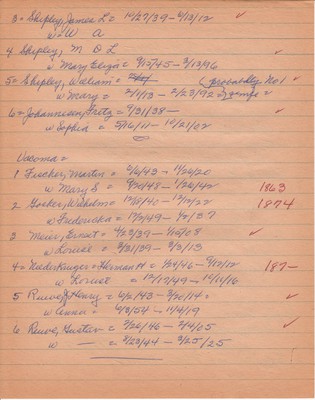 3 = Shepley, James L = 10/27/39 - 4/13/12
w = W A
4 Shepley, M D L
w Mary Eliza = 9/12/45 - 3/13/96
5 = Shepley, William = (probably No 1
w Mary = 2/1/13 - 2/23/92
6 = Johannesen, Fretz = 9/31/38 -
w Sophia = 5/16/11 - 10/21/02
Vacoma =
1 Fischer, Martin = 2/6/43 - 11/26/20
w Mary S = 9/20/48 - 1/26/42 1863
2 Gosker, Wilhelm = 12/15/40 - 12/12/22 1874
w Fredericka = 12/2/49 -
3 Meier, Ernst = 9/23/39 -
w Louise = 3/31/39 - 3/3/13
4 = Niederkruger = Herman H = 1/24/46 - 9/12/12 187-
w Louise = 12/12/49 - 11/11/16
5 Ruwe, J Henry = 6/2/43 - 3/20/14 =
w Anna = 4/3/54 - 11/4/19
6 Ruwe, Gustav = 2/26/46 - 2/4/05
w — = 3/23/44 - 3/25/25